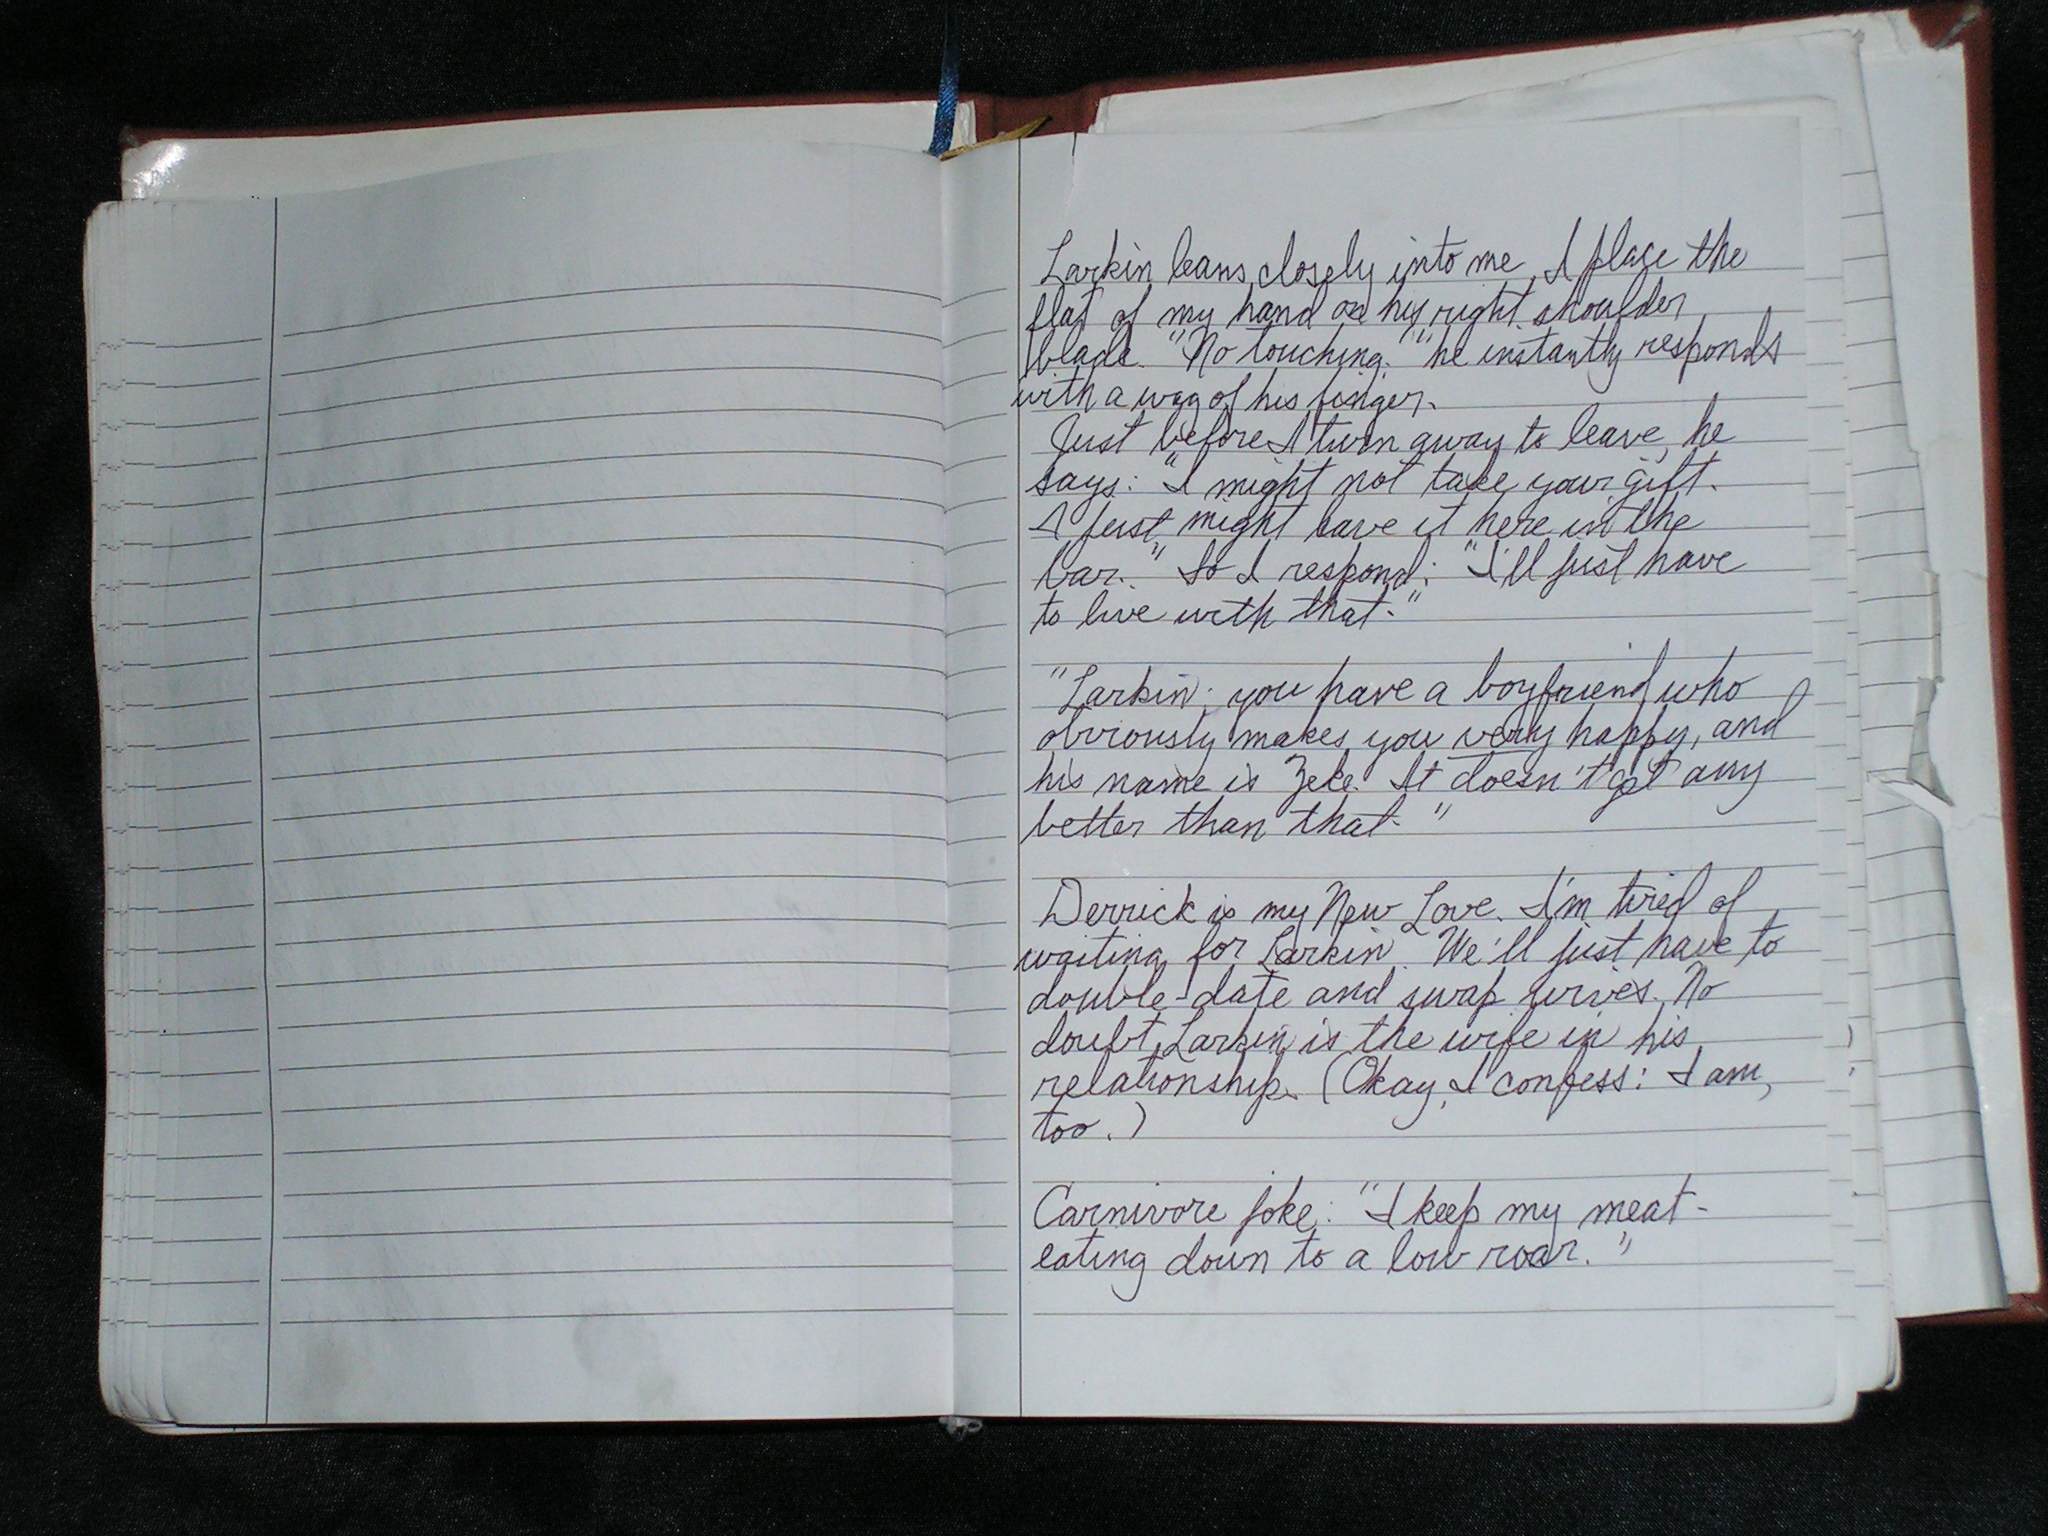 Larkin leans closely into me. I place the
flat of my hand on his right shoulder
blade. "No touching." he instantly responds
with a wag of his finger.
Just before I turn away to leave, he
says: "I might not take your gift.
I just might leave it here in the
bar." So I respond: "I'll just have
to live with that."
"Larkin: you have a boyfriend who
obviously makes you very happy, and
his name is Zeke. It doesn't get any
better than that."
Derrick is my New Love. I'm tired of
waiting for Larkin. We'll just have to
double-date and swap wives. No
doubt, Larkin is the wife in his
relationship. (Okay, I confess: I am,
too.)
Carnivore joke: "I keep my meat-
eating down to a low roar."